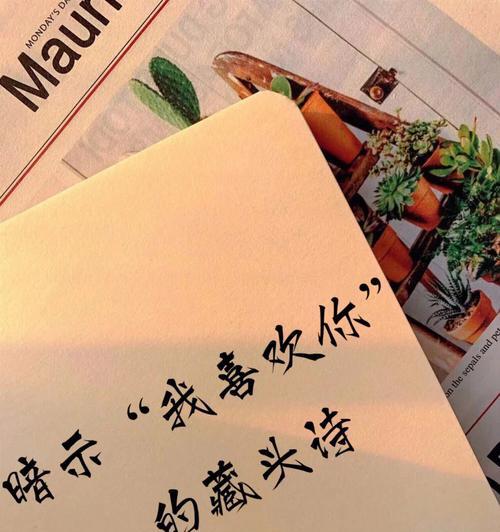 MONDAY'S DA
Maur
暗示“我喜欢你”
的藏头诗
on the sepals and pe